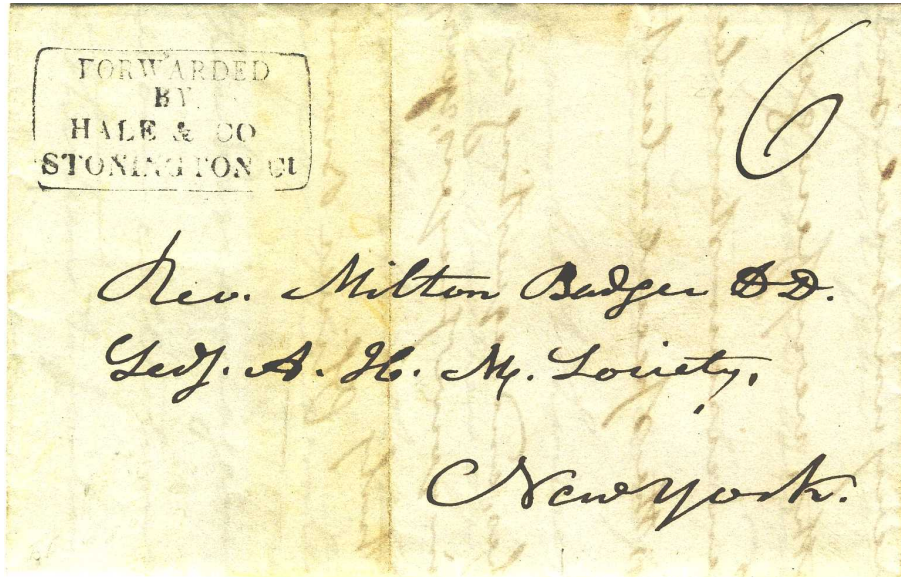 FORWARDED
BY
HALE & CO
STONINGTON Ct
6
Rev. Milton Badger DD.
Secy. A. H. M. Society,
New York.